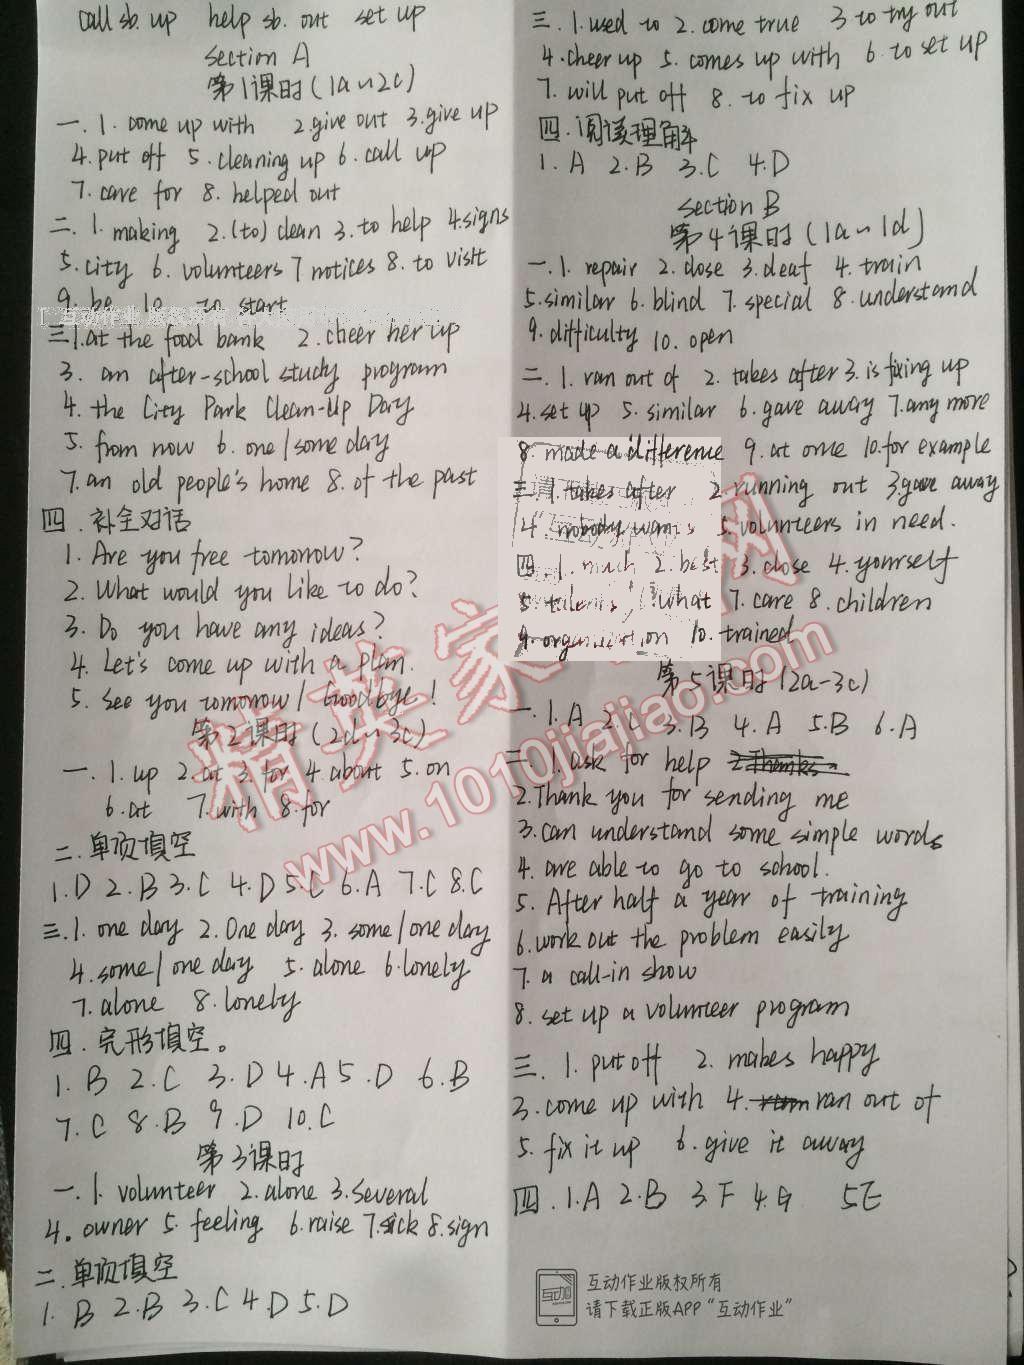 call sb. up help sb. out set up
Section A
第1课时(1a~2c)
一. 1. come up with 2. give out 3. give up
4. put off 5. cleaning up 6. call up
7. care for 8. helped out
二. 1. making 2. (to) clean 3. to help 4. signs
5. city 6. volunteers 7 notices 8. to visit
9. be 10. to start
三 1. at the food bank 2. cheer her up
3. an after-school study program
4. the City Park Clean-Up Day
5. from now 6. one/some day
7. an old people's home 8. of the past
四. 补全对话
1. Are you free tomorrow?
2. What would you like to do?
3. Do you have any ideas?
4. Let's come up with a plan.
5. See you tomorrow/Goodbye!
第2课时(2d~3c)
一. 1. up 2. at 3. for 4. about 5. on
6. at 7. with 8. for
二. 单项填空
1. D 2. B 3. C 4. D 5. C 6. A 7. C 8. C
三. 1. one day 2. One day 3. some/one day
4. some/one day 5. alone 6. lonely
7. alone 8. lonely
四. 完形填空。
1. B 2. C 3. D 4. A 5. D 6. B
7. C 8. B 9. D 10. C
第3课时
一. 1. volunteer 2. alone 3. Several
4. owner 5. feeling 6. raise 7. sick 8. sign
二. 单项填空
1. B 2. B 3. C 4. D 5. D
三. 1. used to 2. come true 3 to try out
4. cheer up 5. comes up with 6. to set up
7. will put off 8. to fix up
四. 阅读理解
1. A 2. B 3. C 4. D
Section B
第4课时(1a~1d)
一. 1. repair 2. close 3. deaf 4. train
5. similar 6. blind 7. special 8. understand
9. difficulty 10. open
二. 1. ran out of 2. takes after 3. is fixing up
4. set up 5. similar 6. gave away 7. any more
8. made a difference 9. at once 10. for example
三 1. takes after 2. running out 3. gave away
4. nobody wants 5. volunteers in need.
四 1. much 2. best 3. close 4. yourself
5. talents what 7. care 8. children
9. organization 10. trained
第5课时(2a-3c)
一. 1. A 2. C 3. B 4. A 5. B 6. A
二. 1. ask for help
2. Thank you for sending me
3. can understand some simple words
4. are able to go to school.
5. After half a year of training
6. work out the problem easily
7. a call-in show
8. set up a volunteer program
三. 1. put off 2. makes happy
3. come up with 4. ran out of
5. fix it up 6. give it away
四. 1. A 2. B 3. F 4. G 5 E
精英家教网
www.1010jiajiao.com
互动作业版权所有
请下载正版APP“互动作业”